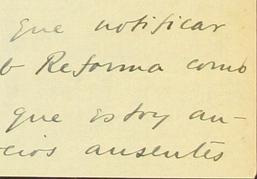 que notificar
Reforma como
que estoy an-
cios ausentes